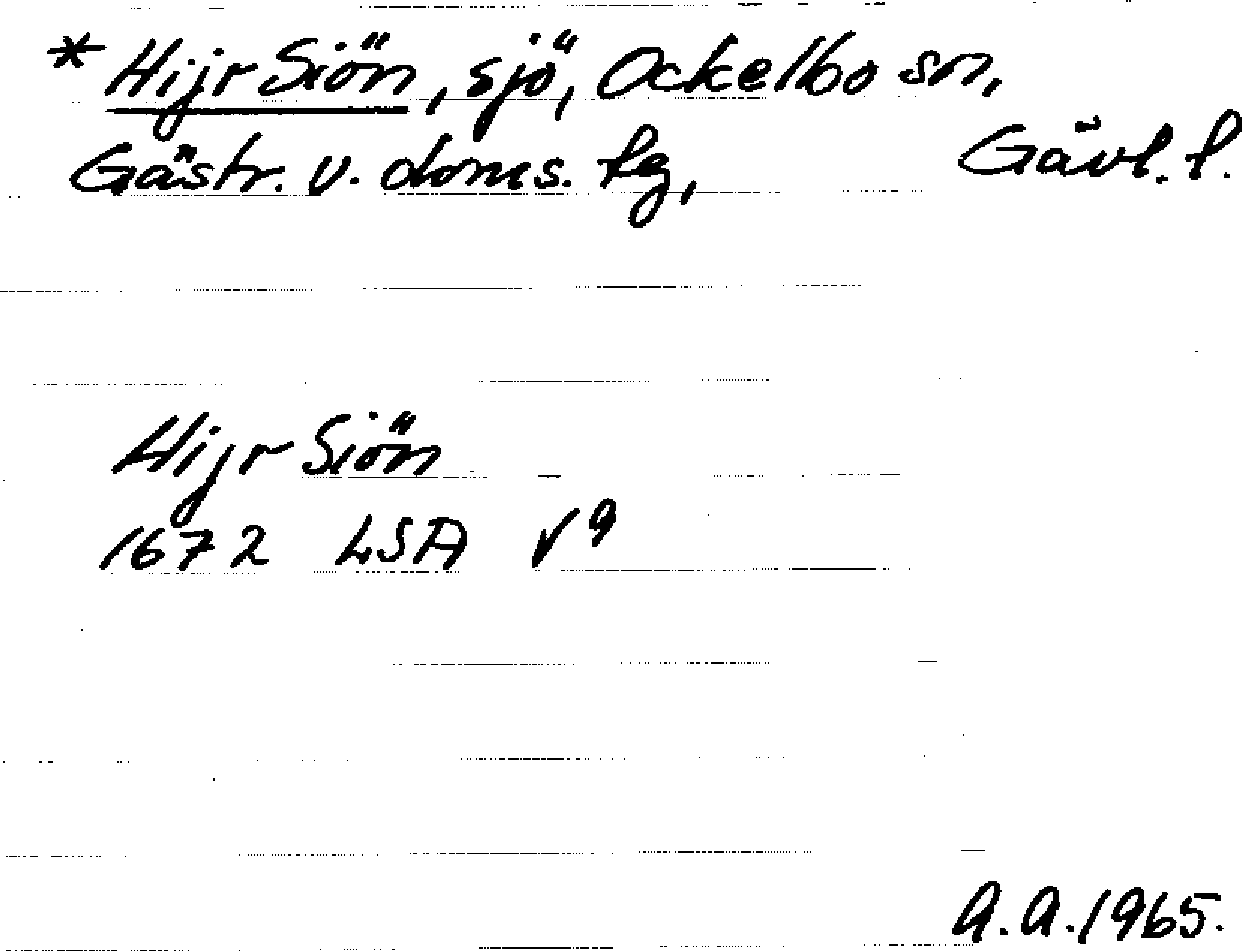 * Hijr Siön, sjö, Ockelbo sn,
Gästr. v. doms. tg, Gävl. l.
Hijr Siön
1672 LSA V9
A.A. 1965.